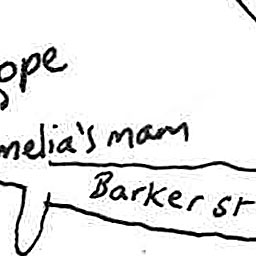 ope
melia's mam
Barker st